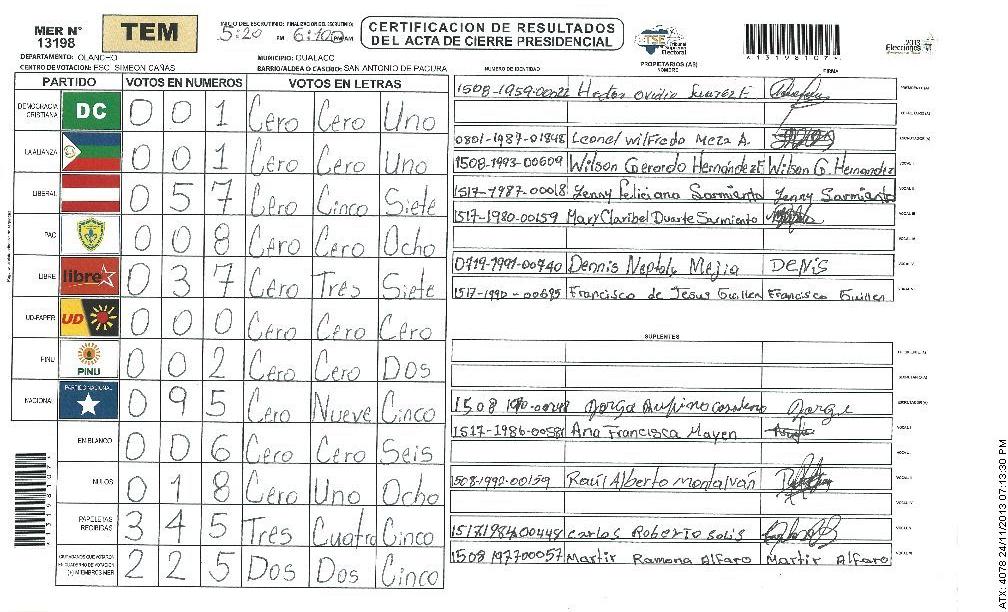 MER N° 13198
TEM
INICIO DEL ESCRUTINIO: FINALIZACION DEL ESCRUTINIO:
5:20 PM 6:10 PM
CERTIFICACION DE RESULTADOS
DEL ACTA DE CIERRE PRESIDENCIAL
TSE Tribunal Supremo Electoral
*131981071*
2013 Elecciones
DEPARTAMENTO: OLANCHO
MUNICIPIO: GUALACO
CENTRO DE VOTACION: ESC. SIMEON CAÑAS
BARRIO/ALDEA O CASERIO: SAN ANTONIO DE PACURA
PARTIDO VOTOS EN NUMEROS VOTOS EN LETRAS
DEMOCRACIA CRISTIANA DC 0 0 1 Cero Cero Uno
LA ALIANZA 0 0 1 Cero Cero Uno
LIBERAL 0 5 7 Cero Cinco Siete
PAC 0 0 8 Cero Cero Ocho
LIBRE libre 0 3 7 Cero Tres Siete
UD-FAPER UD 0 0 0 Cero Cero Cero
PINU PINU 0 0 2 Cero Cero Dos
NACIONAL PARTIDO NACIONAL 0 9 5 Cero Nueve Cinco
EN BLANCO 0 0 6 Cero Cero Seis
NULOS 0 1 8 Cero Uno Ocho
PAPELETAS RECIBIDAS 3 4 5 Tres Cuatro Cinco
CIUDADANOS QUE VOTARON EN CUADERNO DE VOTACION (+) MIEMBROS MER 2 2 5 Dos Dos Cinco
NUMERO DE IDENTIDAD PROPIETARIOS (AS) NOMBRE FIRMA
1508-1959-00022 Hector Ovidio Suarez E PRESIDENTE(A)
SECRETARIO(A)
0801-1987-01848 Leonel Wilfredo Meza A. ESCRUTADOR(A)
1508-1993-00609 Wilson Gerardo Hernández E Wilson G. Hernandez VOCAL I
1517-1987-00018 Yenny Feliciana Sarmiento Yenny Sarmiento VOCAL II
1517-1980-00159 Mary Claribel Duarte Sarmiento VOCAL III
VOCAL IV
0719-1991-00740 Dennis Neptaly Mejia DENIS VOCAL V
1517-1990-00695 Francisco de Jesus Guillen Francisco Guillen
SUPLENTES
PRESIDENTE(A)
SECRETARIO(A)
1508 Jorge Jorge ESCRUTADOR(A)
1517-1986-00581 Ana Francisca Mayen VOCAL I
VOCAL II
1508-1990-00159 Raúl Alberto Montalván
1517198400448 Carlos Roberto Solis
1508197700057 Martir Ramona Alfaro Martir Alfaro
*131981071*
ATX: 4078 24/11/2013 07:13:30 PM